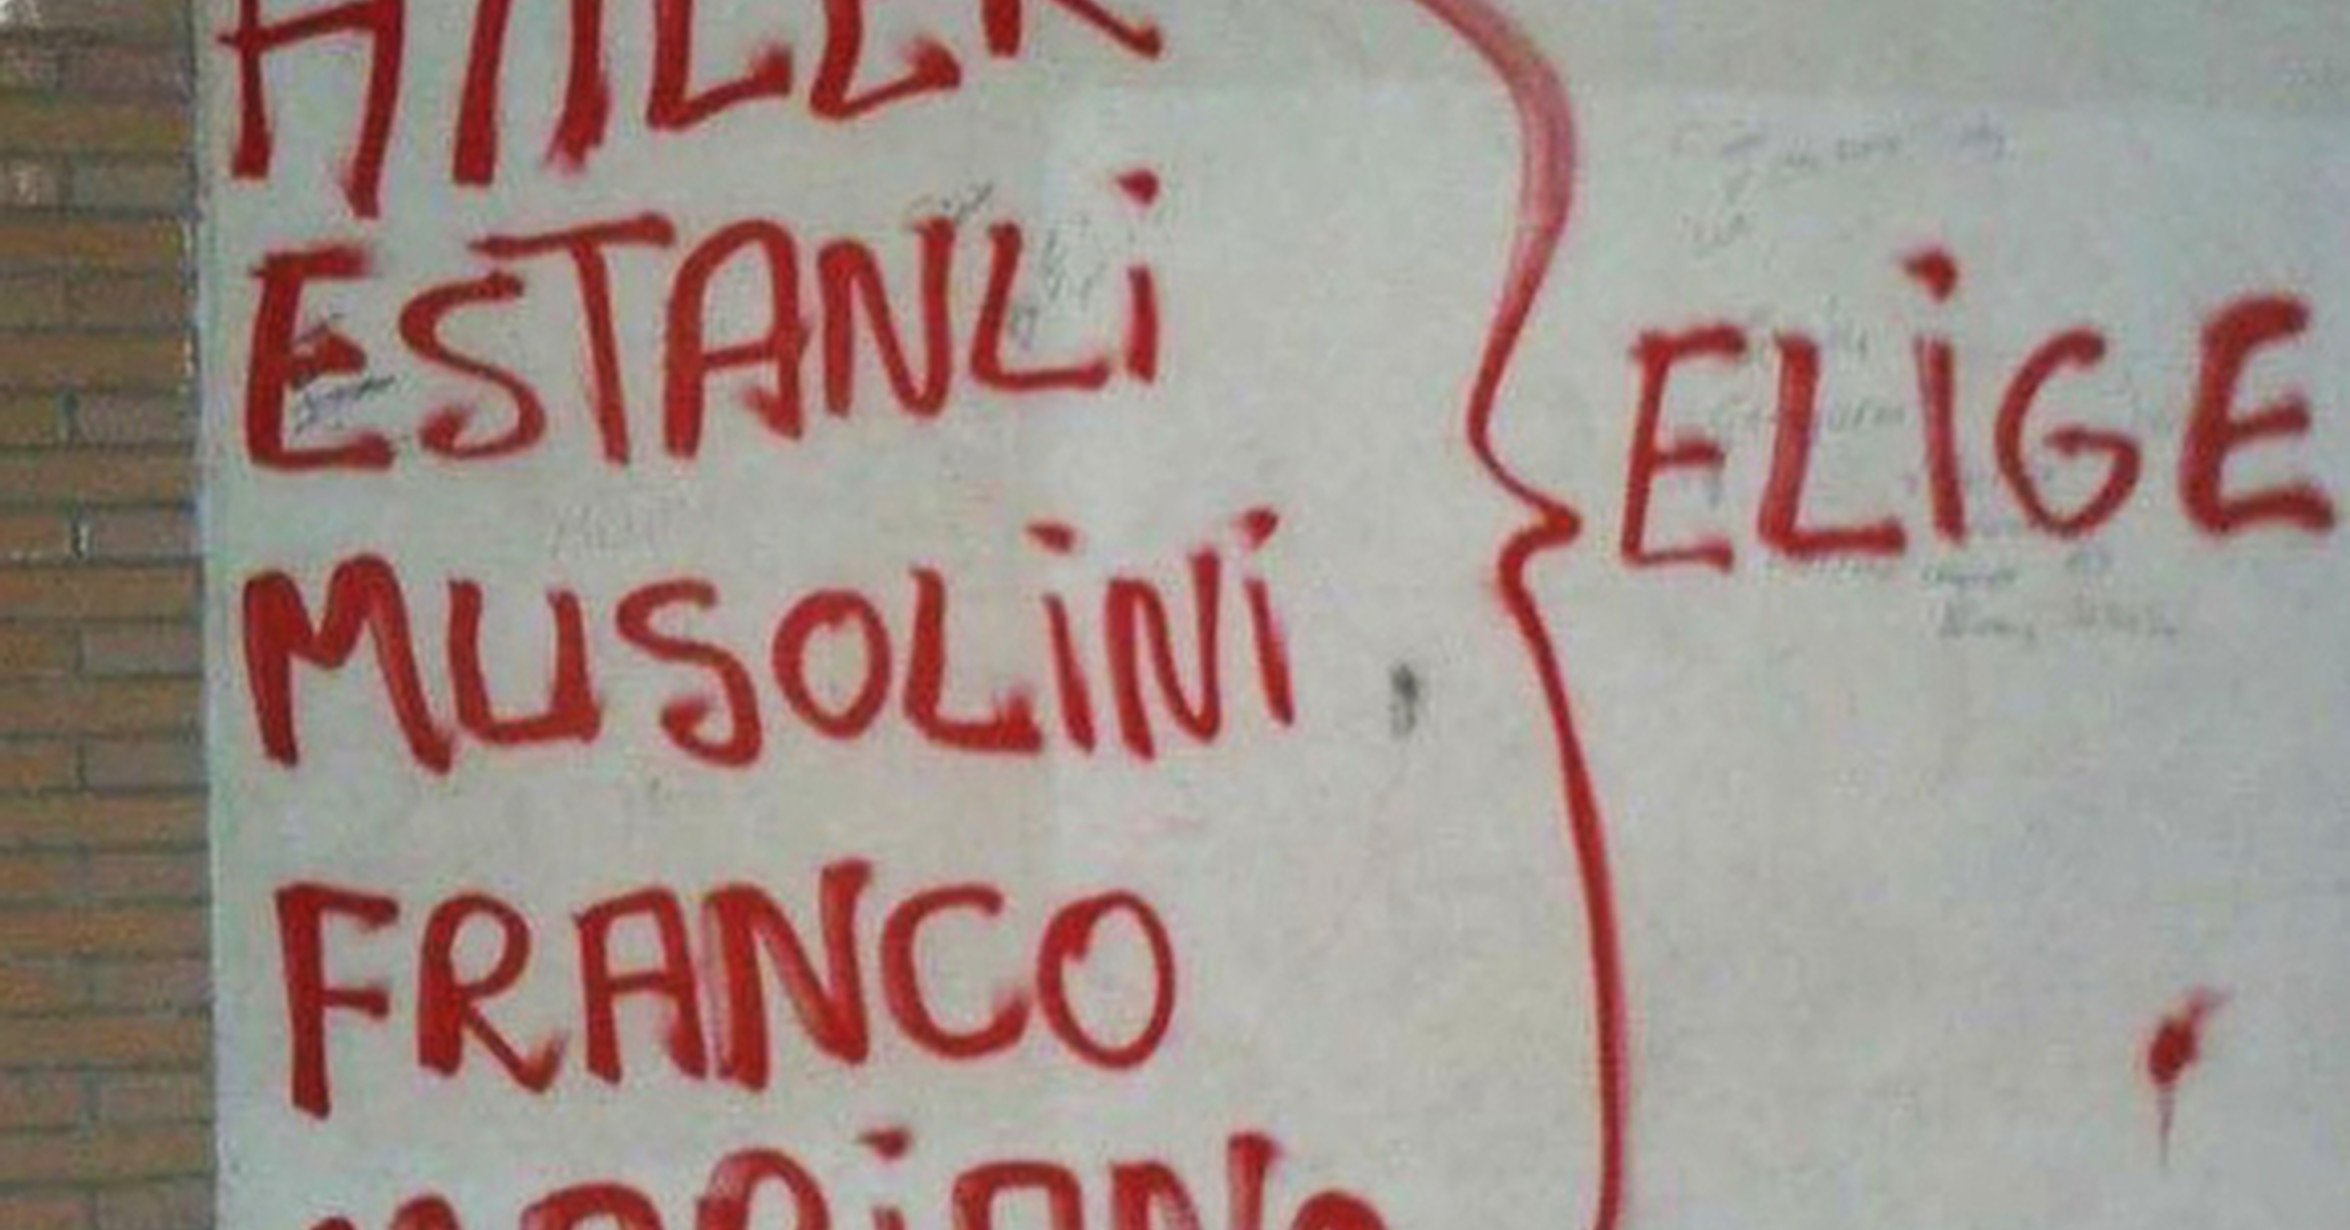 HITLER
ESTANLi
MUSOLiNi
FRANCO
MARiANO
ELiGE